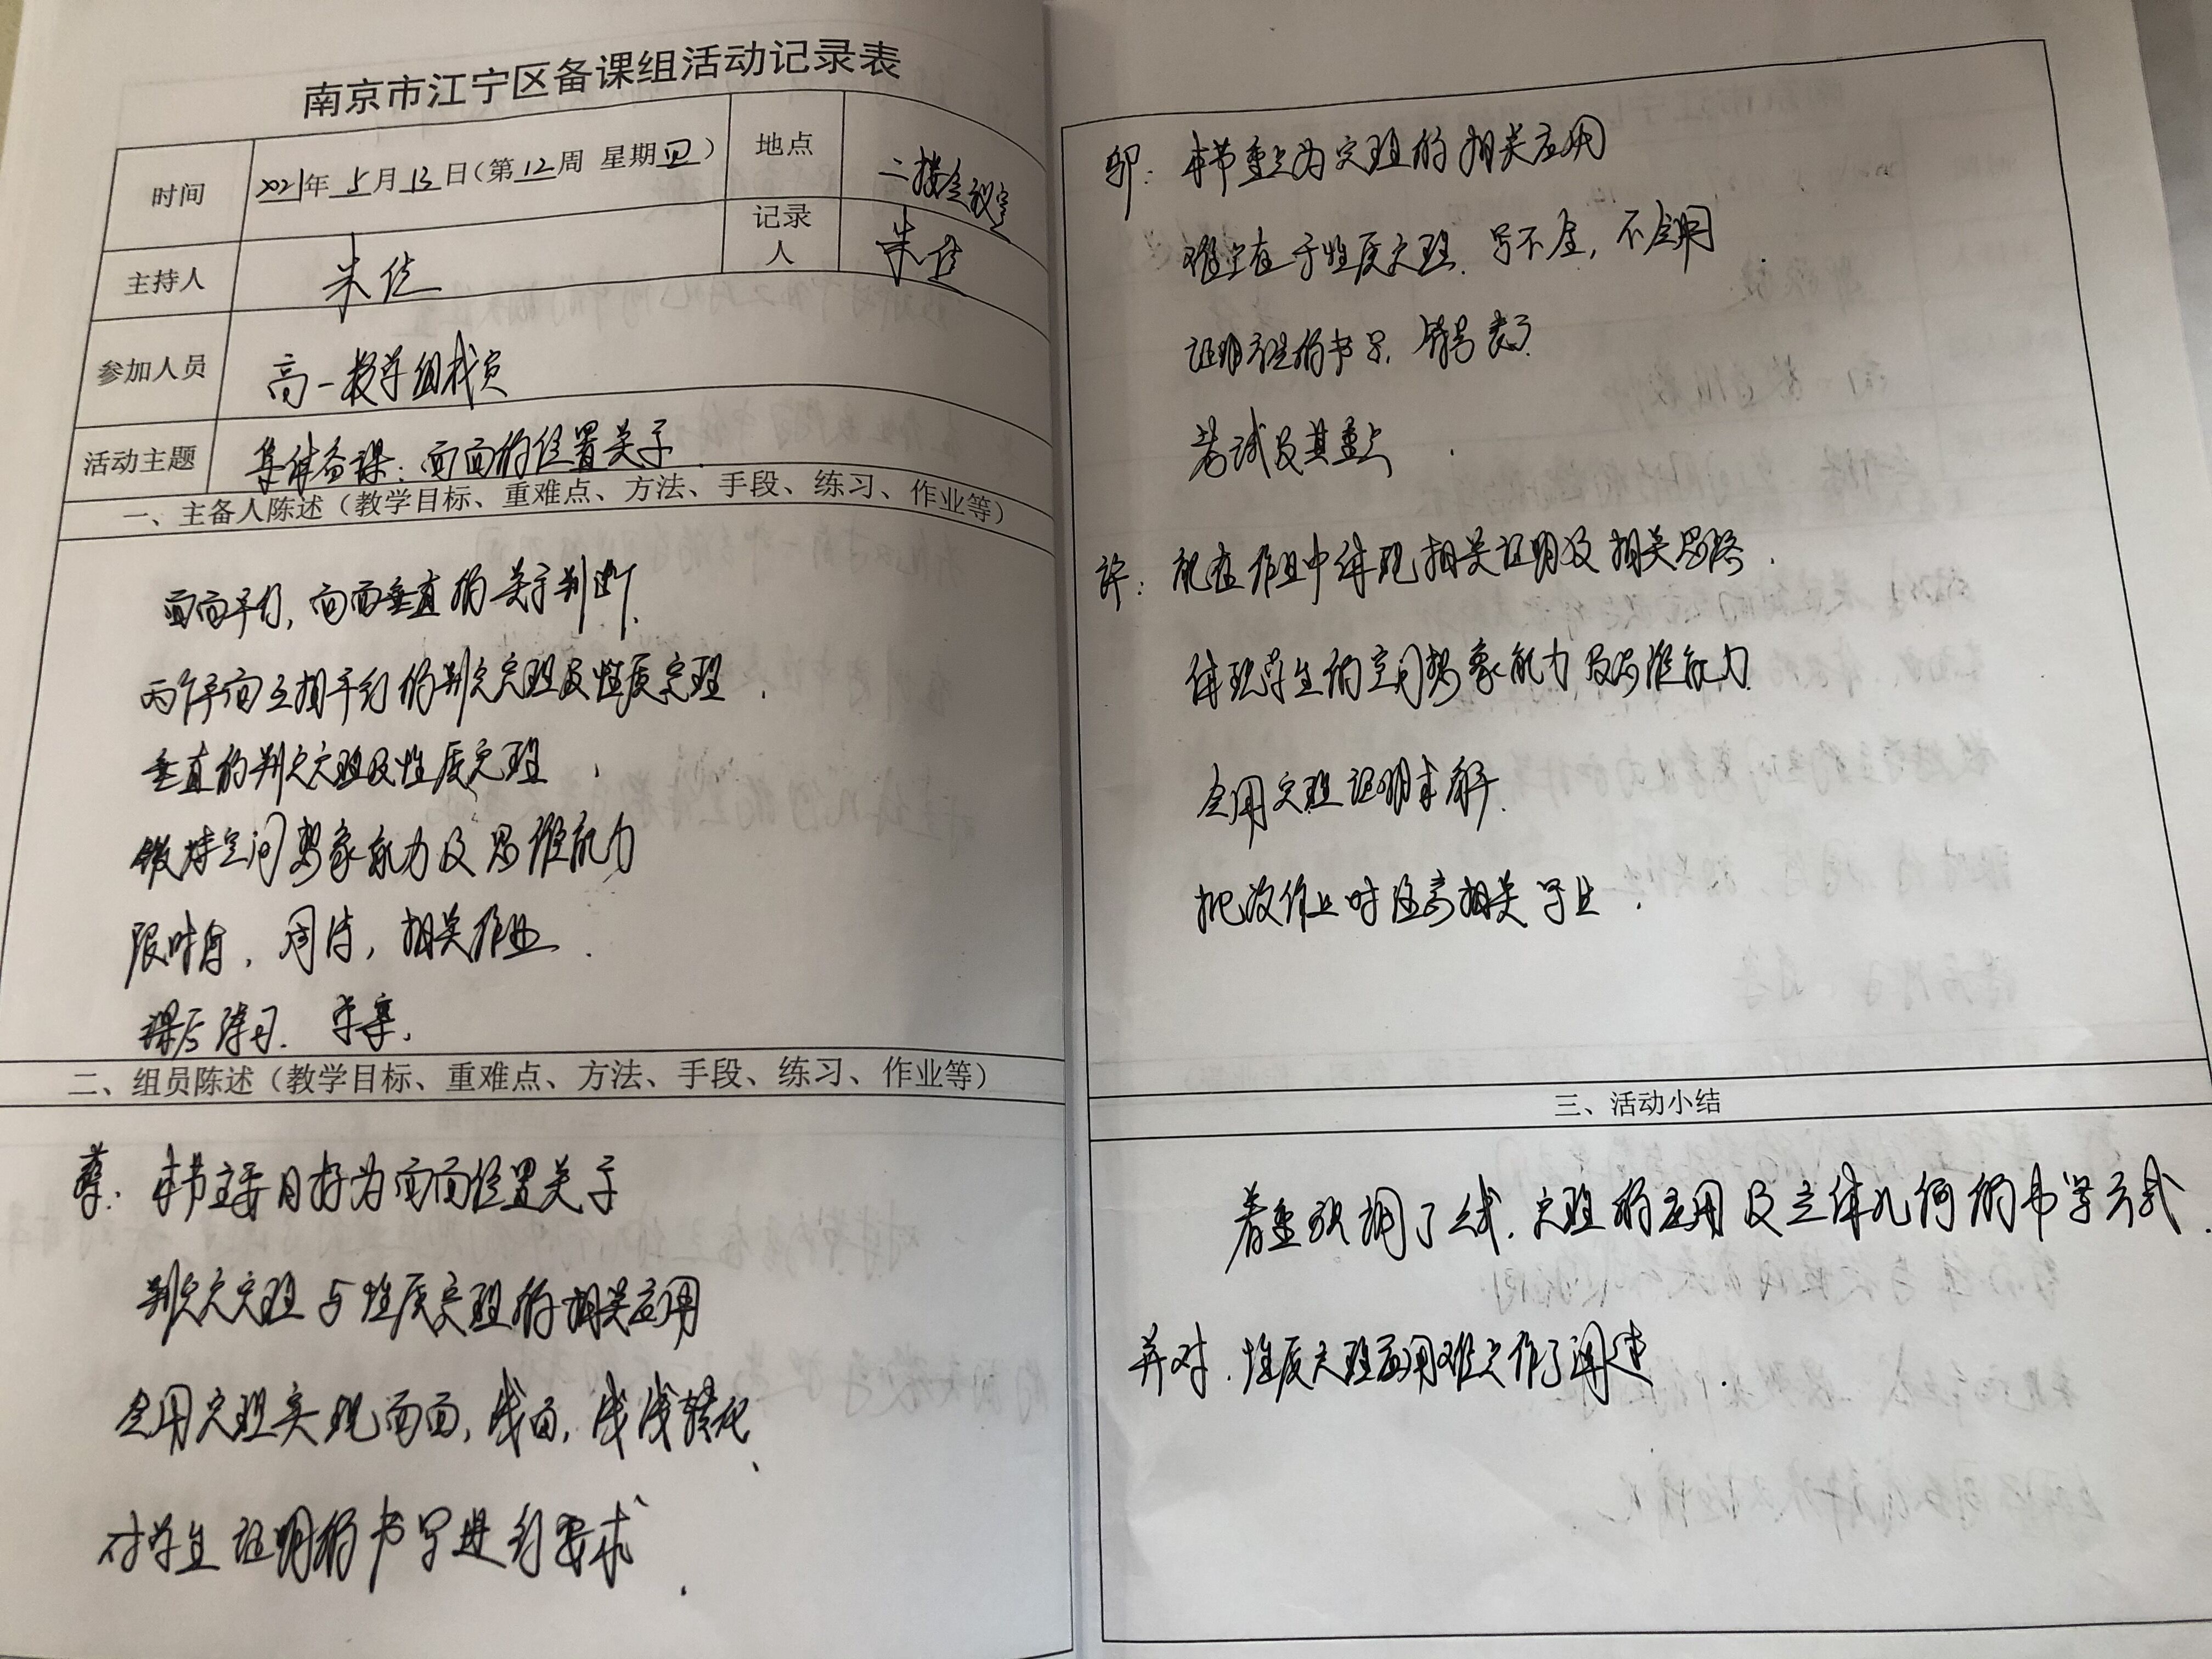 南京市江宁区备课组活动记录表
时间 2021年 5月 13日(第12周 星期四) 地点 二楼会议室
主持人 朱佳 记录人 朱佳
参加人员 高一数学组成员
活动主题 集体备课：面面的位置关系
一、主备人陈述（教学目标、重难点、方法、手段、练习、作业等）
面面平行，面面垂直的关系判断.
两个平面互相平行的判定定理及性质定理.
垂直的判定定理及性质定理.
空间想象能力及思维能力
限时练，周练，相关作业.
课后练习.
二、组员陈述（教学目标、重难点、方法、手段、练习、作业等）
蔡：本节主要目标为面面位置关系
判定定理与性质定理的相关应用
会用定理实现面面，线面，线线转化、
对学生证明的书写进行要求.
本节重点为定理的相关应用
难点在于性质定理. 写不全，不会用.
证明过程的书写，符号表示.
考试及其重点.
许：能在作业中体现相关证明及相关思路.
体现学生的空间想象能力及思维能力.
会用定理证明求解.
批改作业时注意相关书写.
三、活动小结
着重强调了 定理的应用及立体几何的书写方式.
并对. 性质定理应用难点作了阐述.